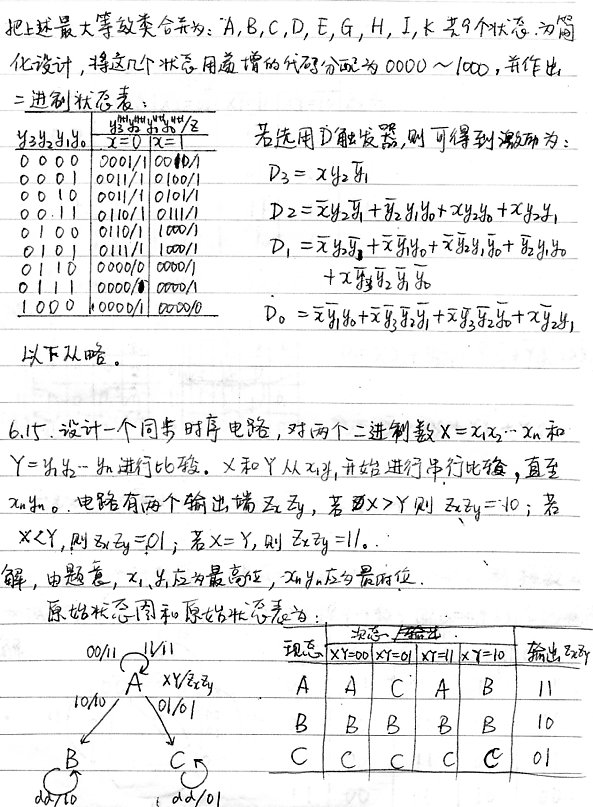 把上述最大等效类合并为: A,B,C,D,E,G,H,I,K 共9个状态. 为简
化设计,将这几个状态用递增的代码分配为0000～1000,并作出
二进制状态表:
y₃ⁿ⁺¹y₂ⁿ⁺¹y₁ⁿ⁺¹y₀ⁿ⁺¹/Z
y₃y₂y₁y₀ x=0 x=1
0000 0001/1 0010/1
0001 0011/1 0100/1
0010 0011/1 0101/1
0011 0110/1 0111/1
0100 0110/1 1000/1
0101 0111/1 1000/1
0110 0000/0 0000/1
0111 0000/ 0000/1
1000 0000/1 0000/0
若选用D触发器,则可得到激励为:
D₃ = xy₂y̅₁
D₂ = x̅y₂y̅₁ + y̅₂y₁y₀ + xy₂y₀ + xy₂y₁
D₁ = x̅y₂y̅₁ + x̅y̅₁y₀ + x̅y̅₂y₁y̅₀ + y̅₂y₁y₀
+ xy̅₃y̅₂y̅₁y̅₀
D₀ = x̅y̅₁y₀ + x̅y̅₃y̅₂y̅₁ + x̅y̅₃y̅₂y̅₀ + xy̅₂y₁
以下从略。
6.15. 设计一个同步时序电路,对两个二进制数X=x₁x₂…xₙ和
Y=y₁y₂…yₙ进行比较。X和Y从x₁y₁开始进行串行比较,直至
xₙyₙ。电路有两个输出端ZxZy,若X>Y则ZxZy=10;若
X<Y,则ZxZy=01;若X=Y,则ZxZy=11。
解,由题意,x₁,y₁应为最高位,xₙyₙ应为最低位.
原始状态图和原始状态表为:
00/11 11/11
A XY/ZxZy
10/10 01/01
B C
dd/10 dd/01
现态 次态/输出 输出ZxZy
XY=00 XY=01 XY=11 XY=10
A A C A B 11
B B B B B 10
C C C C C 01